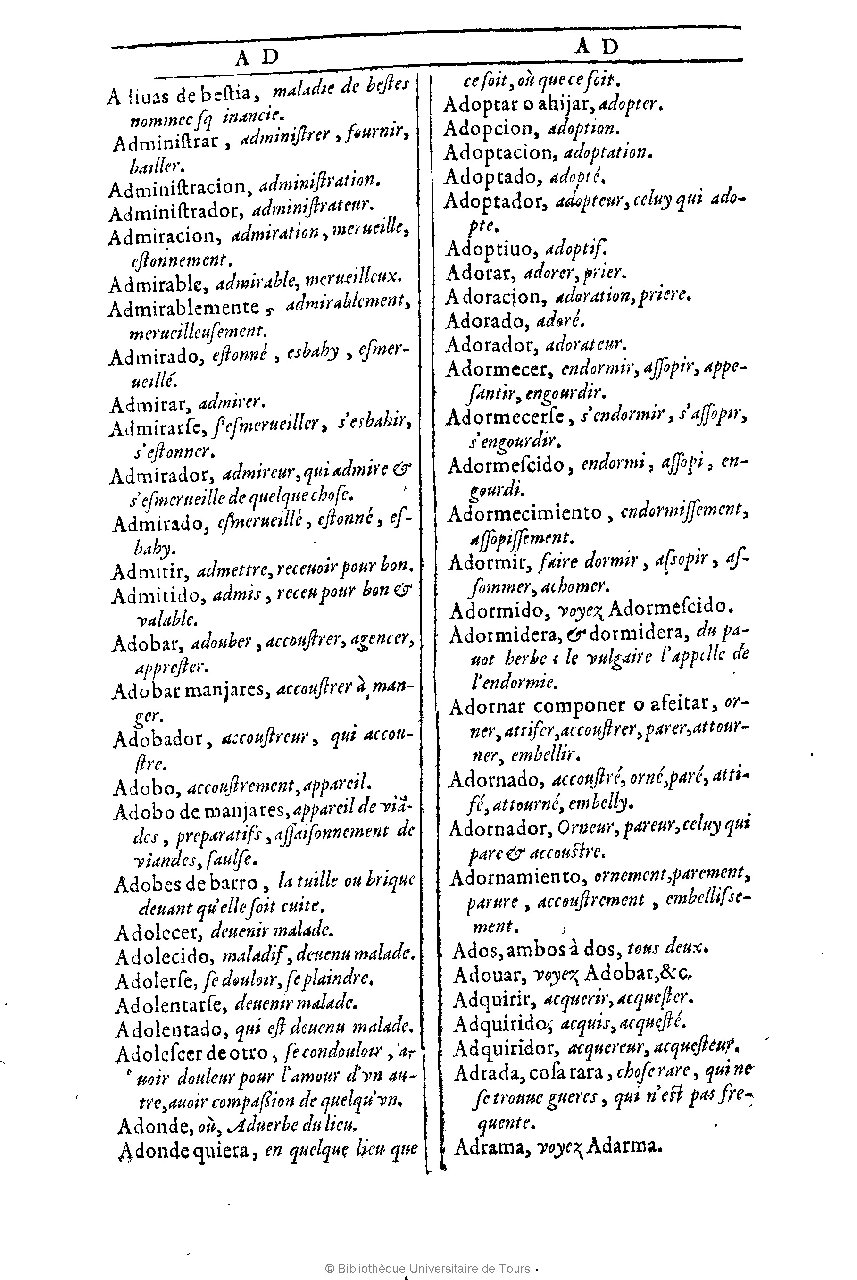 A D
Aliuas de beſtia, maladie de beſtes
nommee
Adminiſtrar, adminiſtrer, fournir,
bailler.
Adminiſtracion, adminiſtration.
Adminiſtrador, adminiſtrateur.
Admiracion, admiration, merueille,
eſtonnement.
Admirable, admirable, merueilleux.
Admirablemente, admirablement,
merueilleuſement.
Admirado, eſtonné, esbahy, eſmer-
ueillé.
Admirar, admirer.
Admirarſe, ſ'eſmerueiller, s'esbahir,
s'eſtonner.
Admirador, admireur, qui admire &
s'eſmerueille de quelque choſe.
Admirado, eſmerueillé, eſtonné, eſ-
bahy.
Admitir, admettre, receuoir pour bon.
Admitido, admis, receu pour bon &
valable.
Adobar, adouber, accouſtrer, agencer,
appreſter.
Adobar manjares, accouſtrer à man-
ger.
Adobador, accouſtreur, qui accou-
ſtre.
Adobo, accouſtrement, appareil.
Adobo de manjares, appareil de viā-
des, preparatifs, aſſaiſonnement de
viandes, ſaulſe.
Adobes de barro, la tuille ou brique
deuant qu'elle ſoit cuite.
Adolecer, deuenir malade.
Adolecido, maladif, deuenu malade.
Adolerſe, ſe douloir, ſe plaindre.
Adolentarſe, deuenir malade.
Adolentado, qui eſt deuenu malade.
Adoleſcer de otro, ſe condouloir, a-
uoir douleur pour l'amour d'vn au-
tre, auoir compaſſion de quelqu'vn.
Adonde, où, Aduerbe du lieu.
Adonde quiera, en quelque lieu que
A D
ce ſoit, où que ce ſoit.
Adoptar o ahijar, adopter.
Adopcion, adoption.
Adoptacion, adoptation.
Adoptado, adopté.
Adoptador, adopteur, celuy qui ado-
pte.
Adoptiuo, adoptif.
Adorar, adorer, prier.
Adoracion, adoration, priere.
Adorado, adoré.
Adorador, adorateur.
Adormecer, endormir, aſſopir, appe-
ſantir, engourdir.
Adormecerſe, s'endormir, s'aſſopir,
s'engourdir.
Adormeſcido, endormi, aſſopi, en-
gourdi.
Adormecimiento, endormiſſement,
aſſopiſſement.
Adormir, faire dormir, aſsopir, aſ-
ſommer, achomer.
Adormido, voyez Adormeſcido.
Adormidera, & dormidera, du pa-
uot herbe: le vulgaire l'appelle de
l'endormie.
Adornar componer o afeitar, or-
ner, attifer, accouſtrer, parer, attour-
ner, embellir.
Adornado, accouſtré, orné, paré, atti-
fé, attourné, embelly.
Adornador, Orneur, pareur, celuy qui
pare & accouſtre.
Adornamiento, ornement, parement,
parure, accouſtrement, embelliſse-
ment.
Ados, ambos à dos, tous deux.
Adouar, voyez Adobar, &c.
Adquirir, acquerir, acqueſter.
Adquirido, acquis, acqueſté.
Adquiridor, acquereur, acqueſteur.
Adrada, coſa rara, choſe rare, qui ne
ſe trouue gueres, qui n'eſt pas fre-
quente.
Adrama, voyez Adarma.
© Bibliothèque Universitaire de Tours